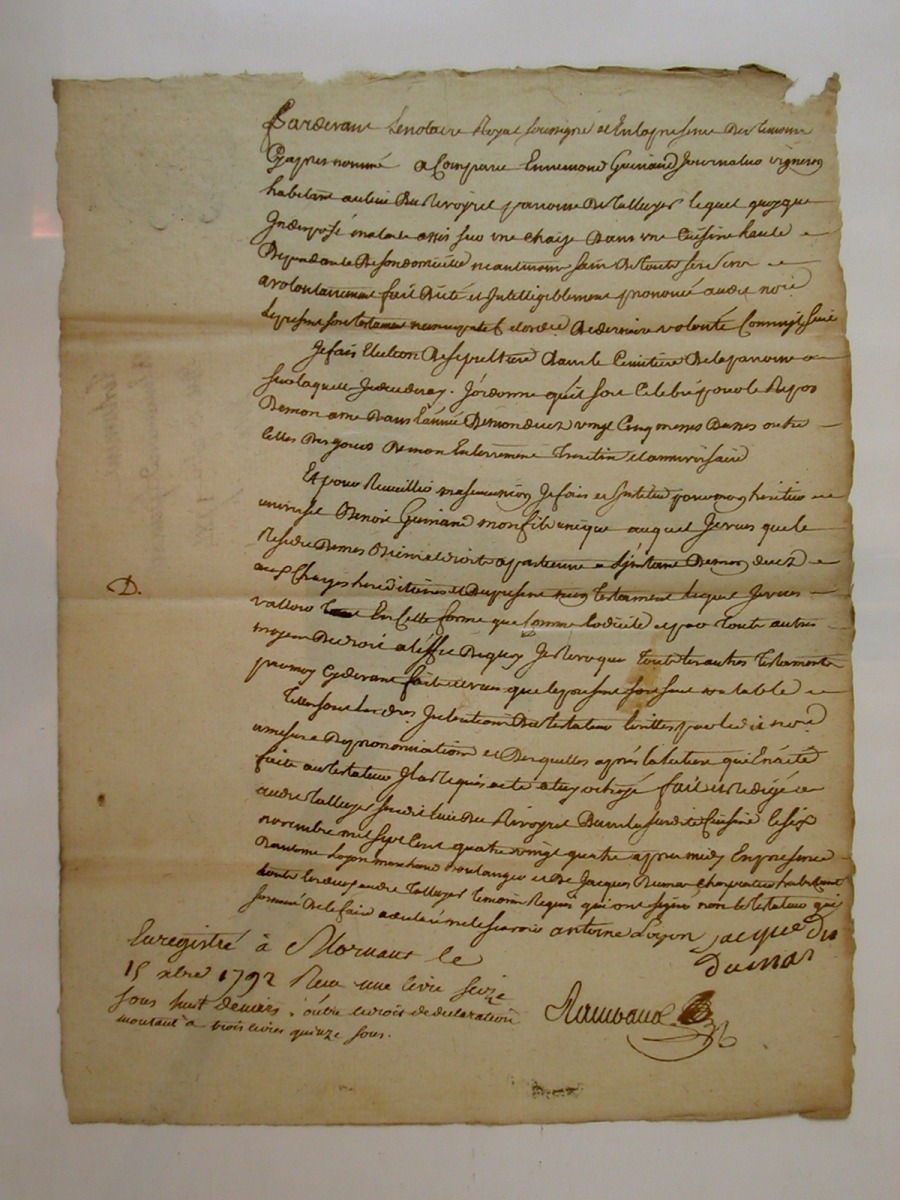 Pardevant Le notaire Royal soussigné et En la presence Des temoins
Cy apres nommé a Comparu Ennemond Guiniand Journalier vigneron
habitant au lieu Du Rivoyret parroisse De Talluyer lequel quoyque
Indisposé et malade assis sur une chaise Dans une Cuisine haute
Dependante De son domicille neantmoins sain De toute ses sens
a volontairement fait Dicté et Intelligiblement prononcé audit no.re
Le present son testament nuncupatif et ordre De derniere volonté Comme s'ensuit
Je fais Election De sepulture Dans le Cimetiere De la parroisse
sur laquelle Je decederay. J'ordonne qu'il soit Celebré pour le Repos
De mon ame Dans l'année De mon deces vingt Cinq messes Basses outre
Celles Des jours De mon Enterrement trentin et anniversaire
Et pour Recueillir ma succession Je fais et Institue pour mon heritier
universel Benoit Guiniand mon fils unique auquel Je veux que le
Residu De mes Biens et droits appartienne a l'instant De mon deces
aux Charges hereditaires et Du present mon testament lequel Je veux
valloir En Cette forme que Comme Codicile et par toute autres
moyens De droit a l'effet De quoy Je Revoque toute les autres testaments
par moy Cy devant fait et veux que le present soit seul valable
Telles sont les d.res Intentions Du testateur Ecrittes par le dit no.re
a mesure De prononciation et Desquelles apres la lecture qui En a eté
faite au testateur Il a Requis acte a luy octroyé fait et Redigé
audit Talluyer susdit lieu Du Rivoyret Dans la susdite Cuisine le six
novembre mil sept Cent quatre vingt quatre apres midy En presence
D'antoine Loyon marchand Boulanger et De Jacques Dumas Charpentier habitant
tout les deux audit Talluyer temoins Requis qui ont signé non le testateur qui
sommé De le faire a declaré ne le scavoir antoine Loyon jacque Du
dumas
D.
Enregistré à Mornant le
15 xbre 1792 Reçu une livre seize
sous huit deniers, outre le droit de declaration
montant a trois livres quinze sous.
Rambaud